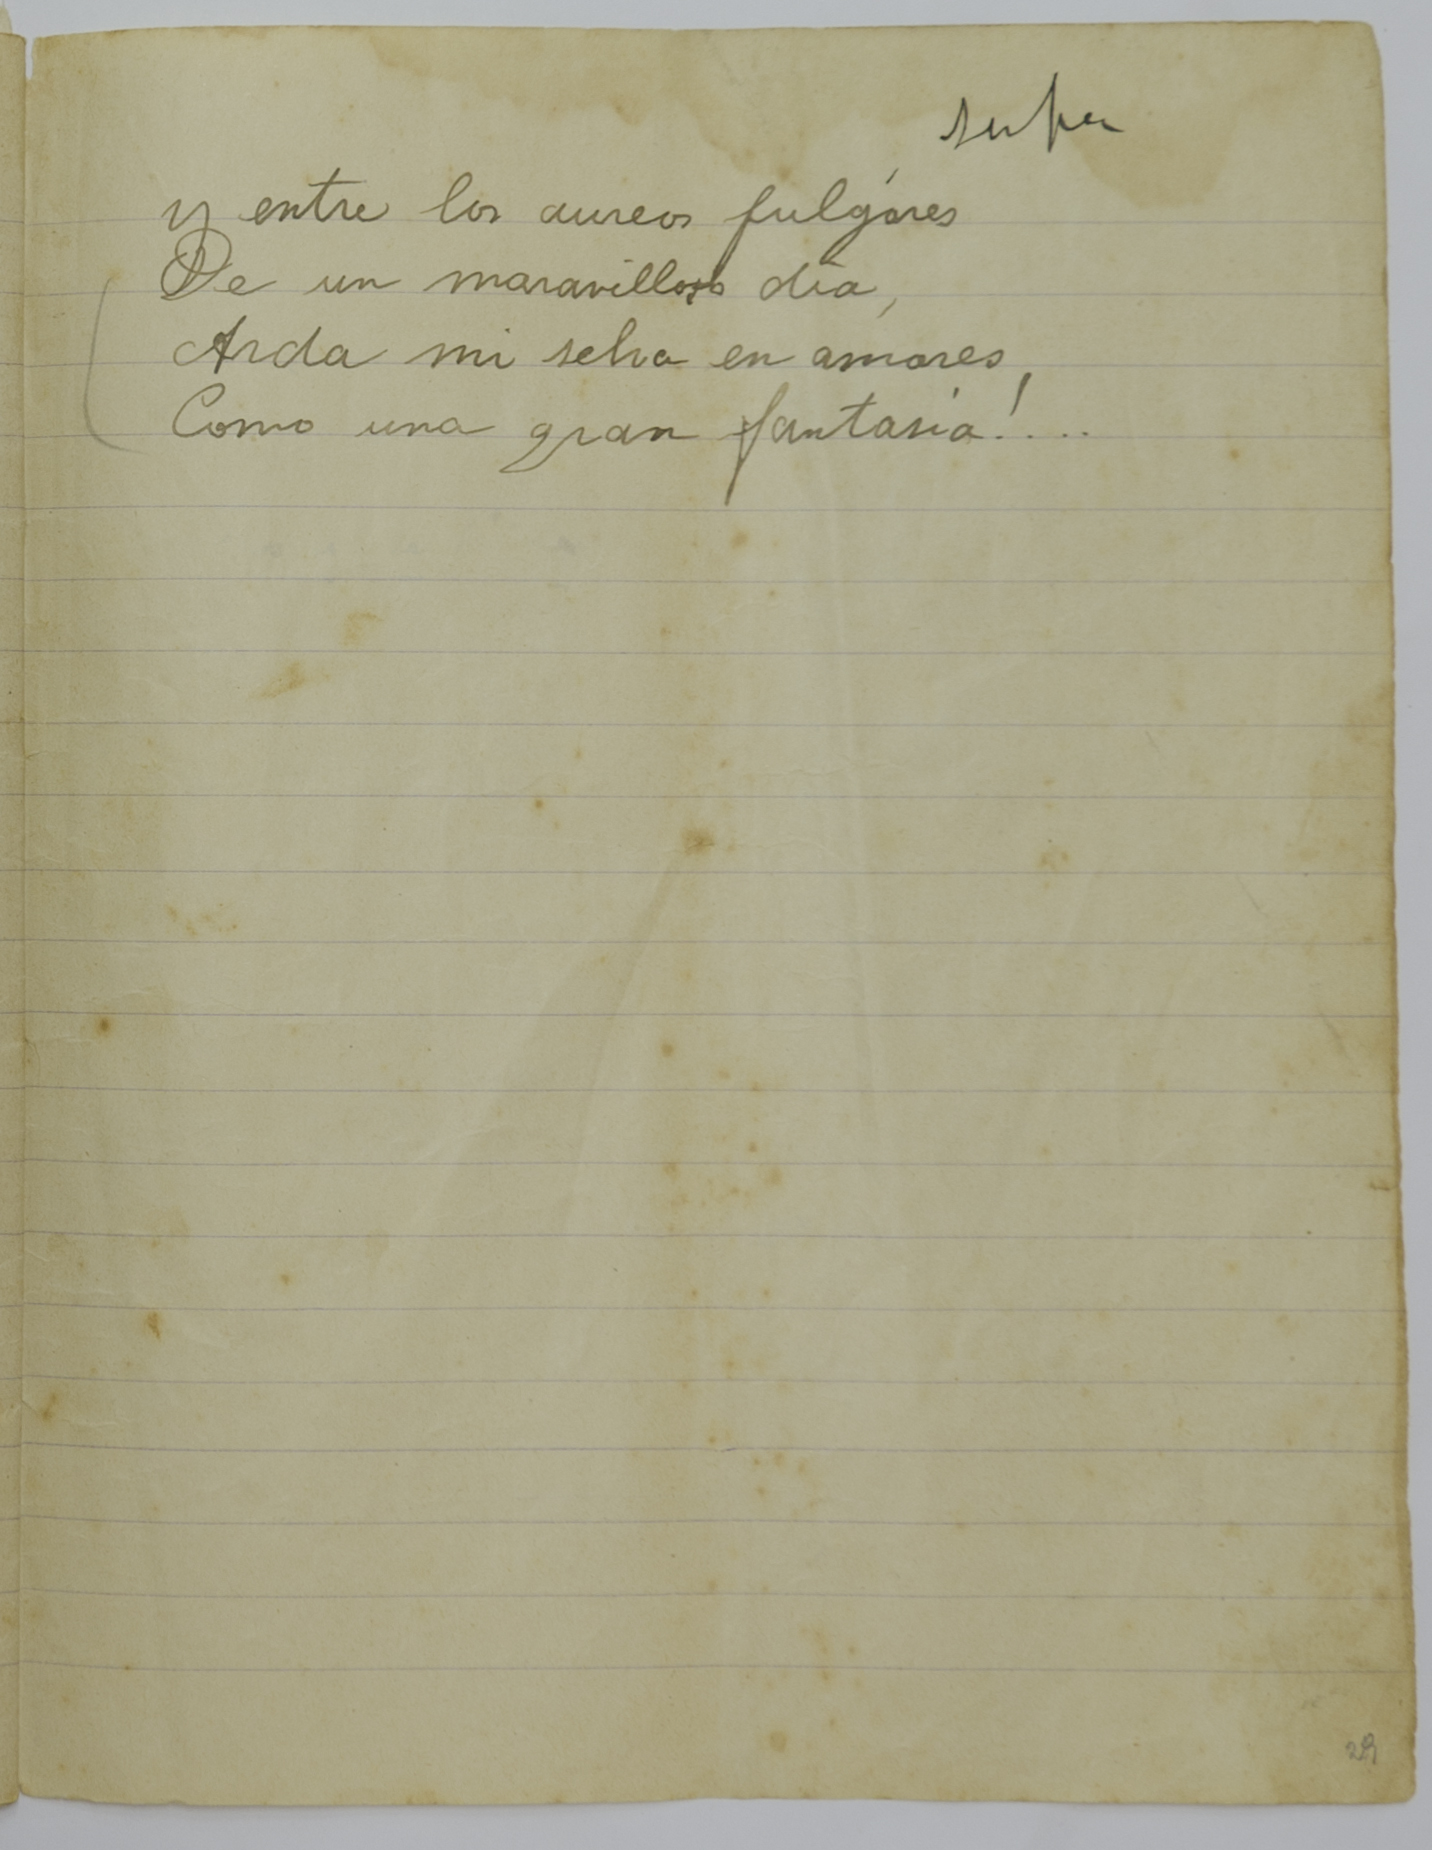 super
y entre los aureos fulgóres
De un maravilloso día,
Arda mi selva en amores,
Como una gran fantasía!....
29